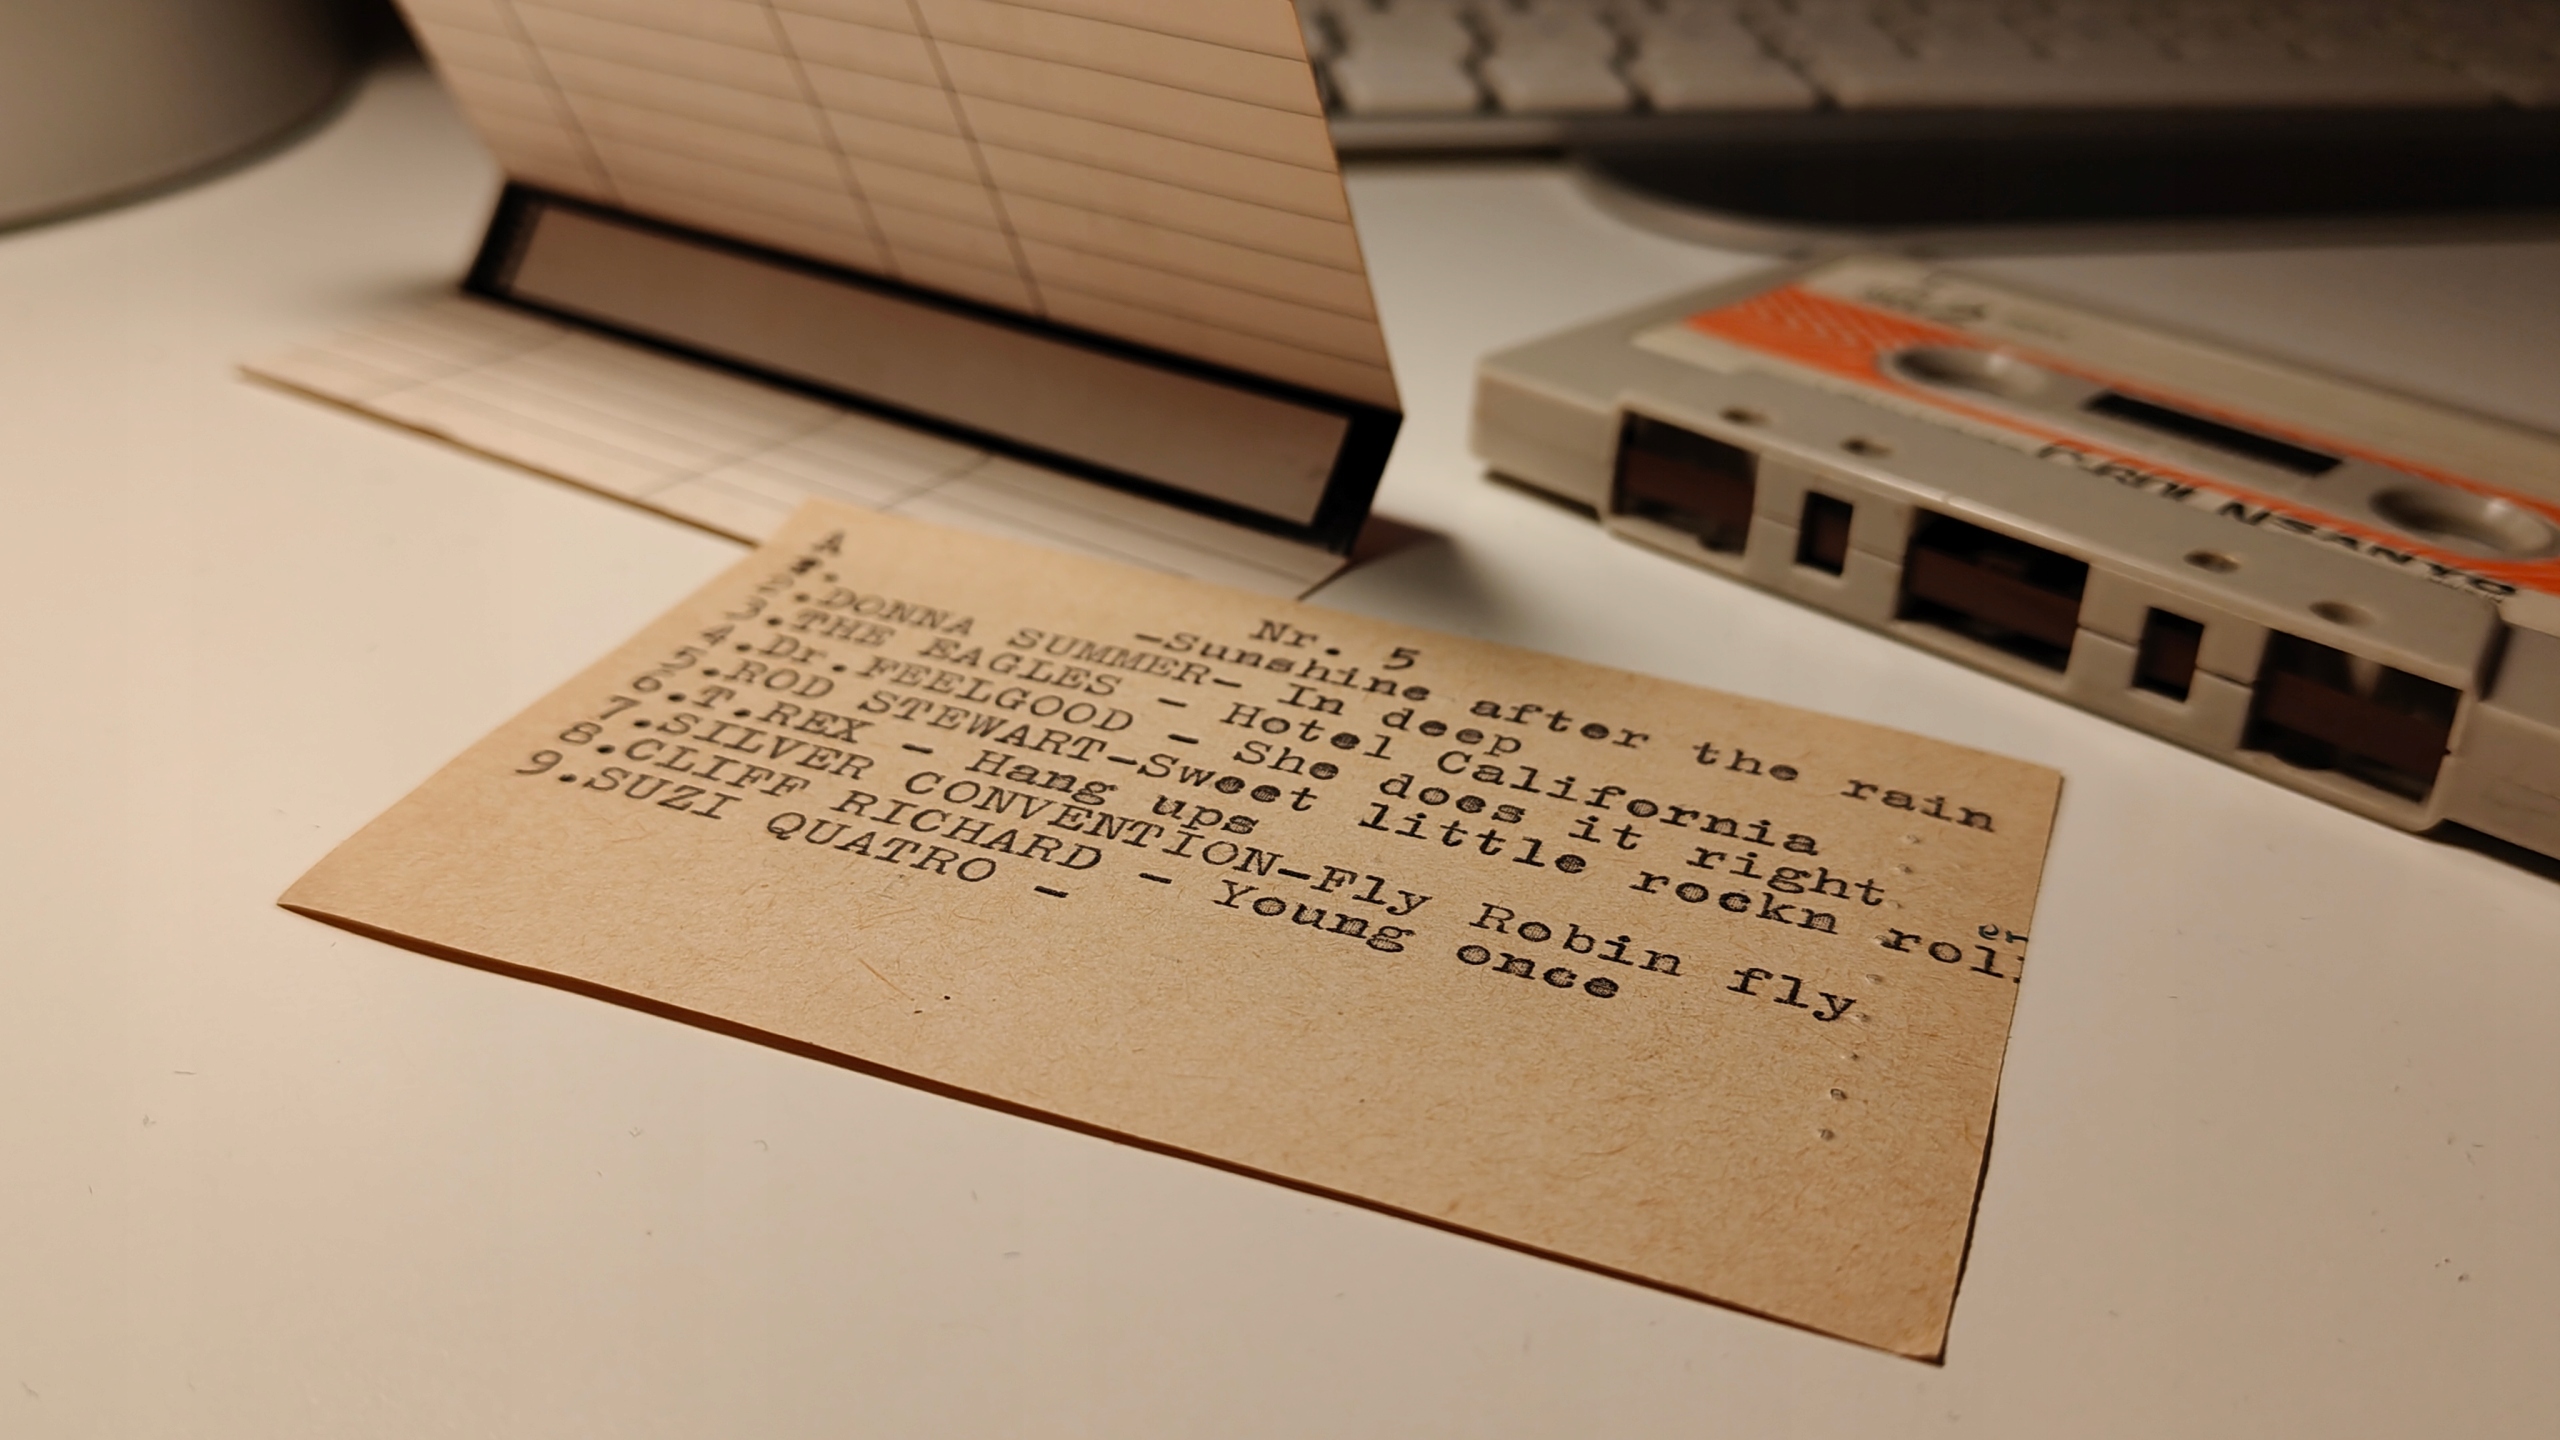 A Nr. 5
1. -Sunshine after the rain
2.DONNA SUMMER- In deep
3.THE EAGLES - Hotel California
4.Dr.FEELGOOD - She does it right
er
5.ROD STEWART-Sweet little rockn roll
6.T.REX - Hang ups
7.SILVER CONVENTION-Fly Robin fly
8.CLIFF RICHARD - Young once
9.SUZI QUATRO -
SANYO